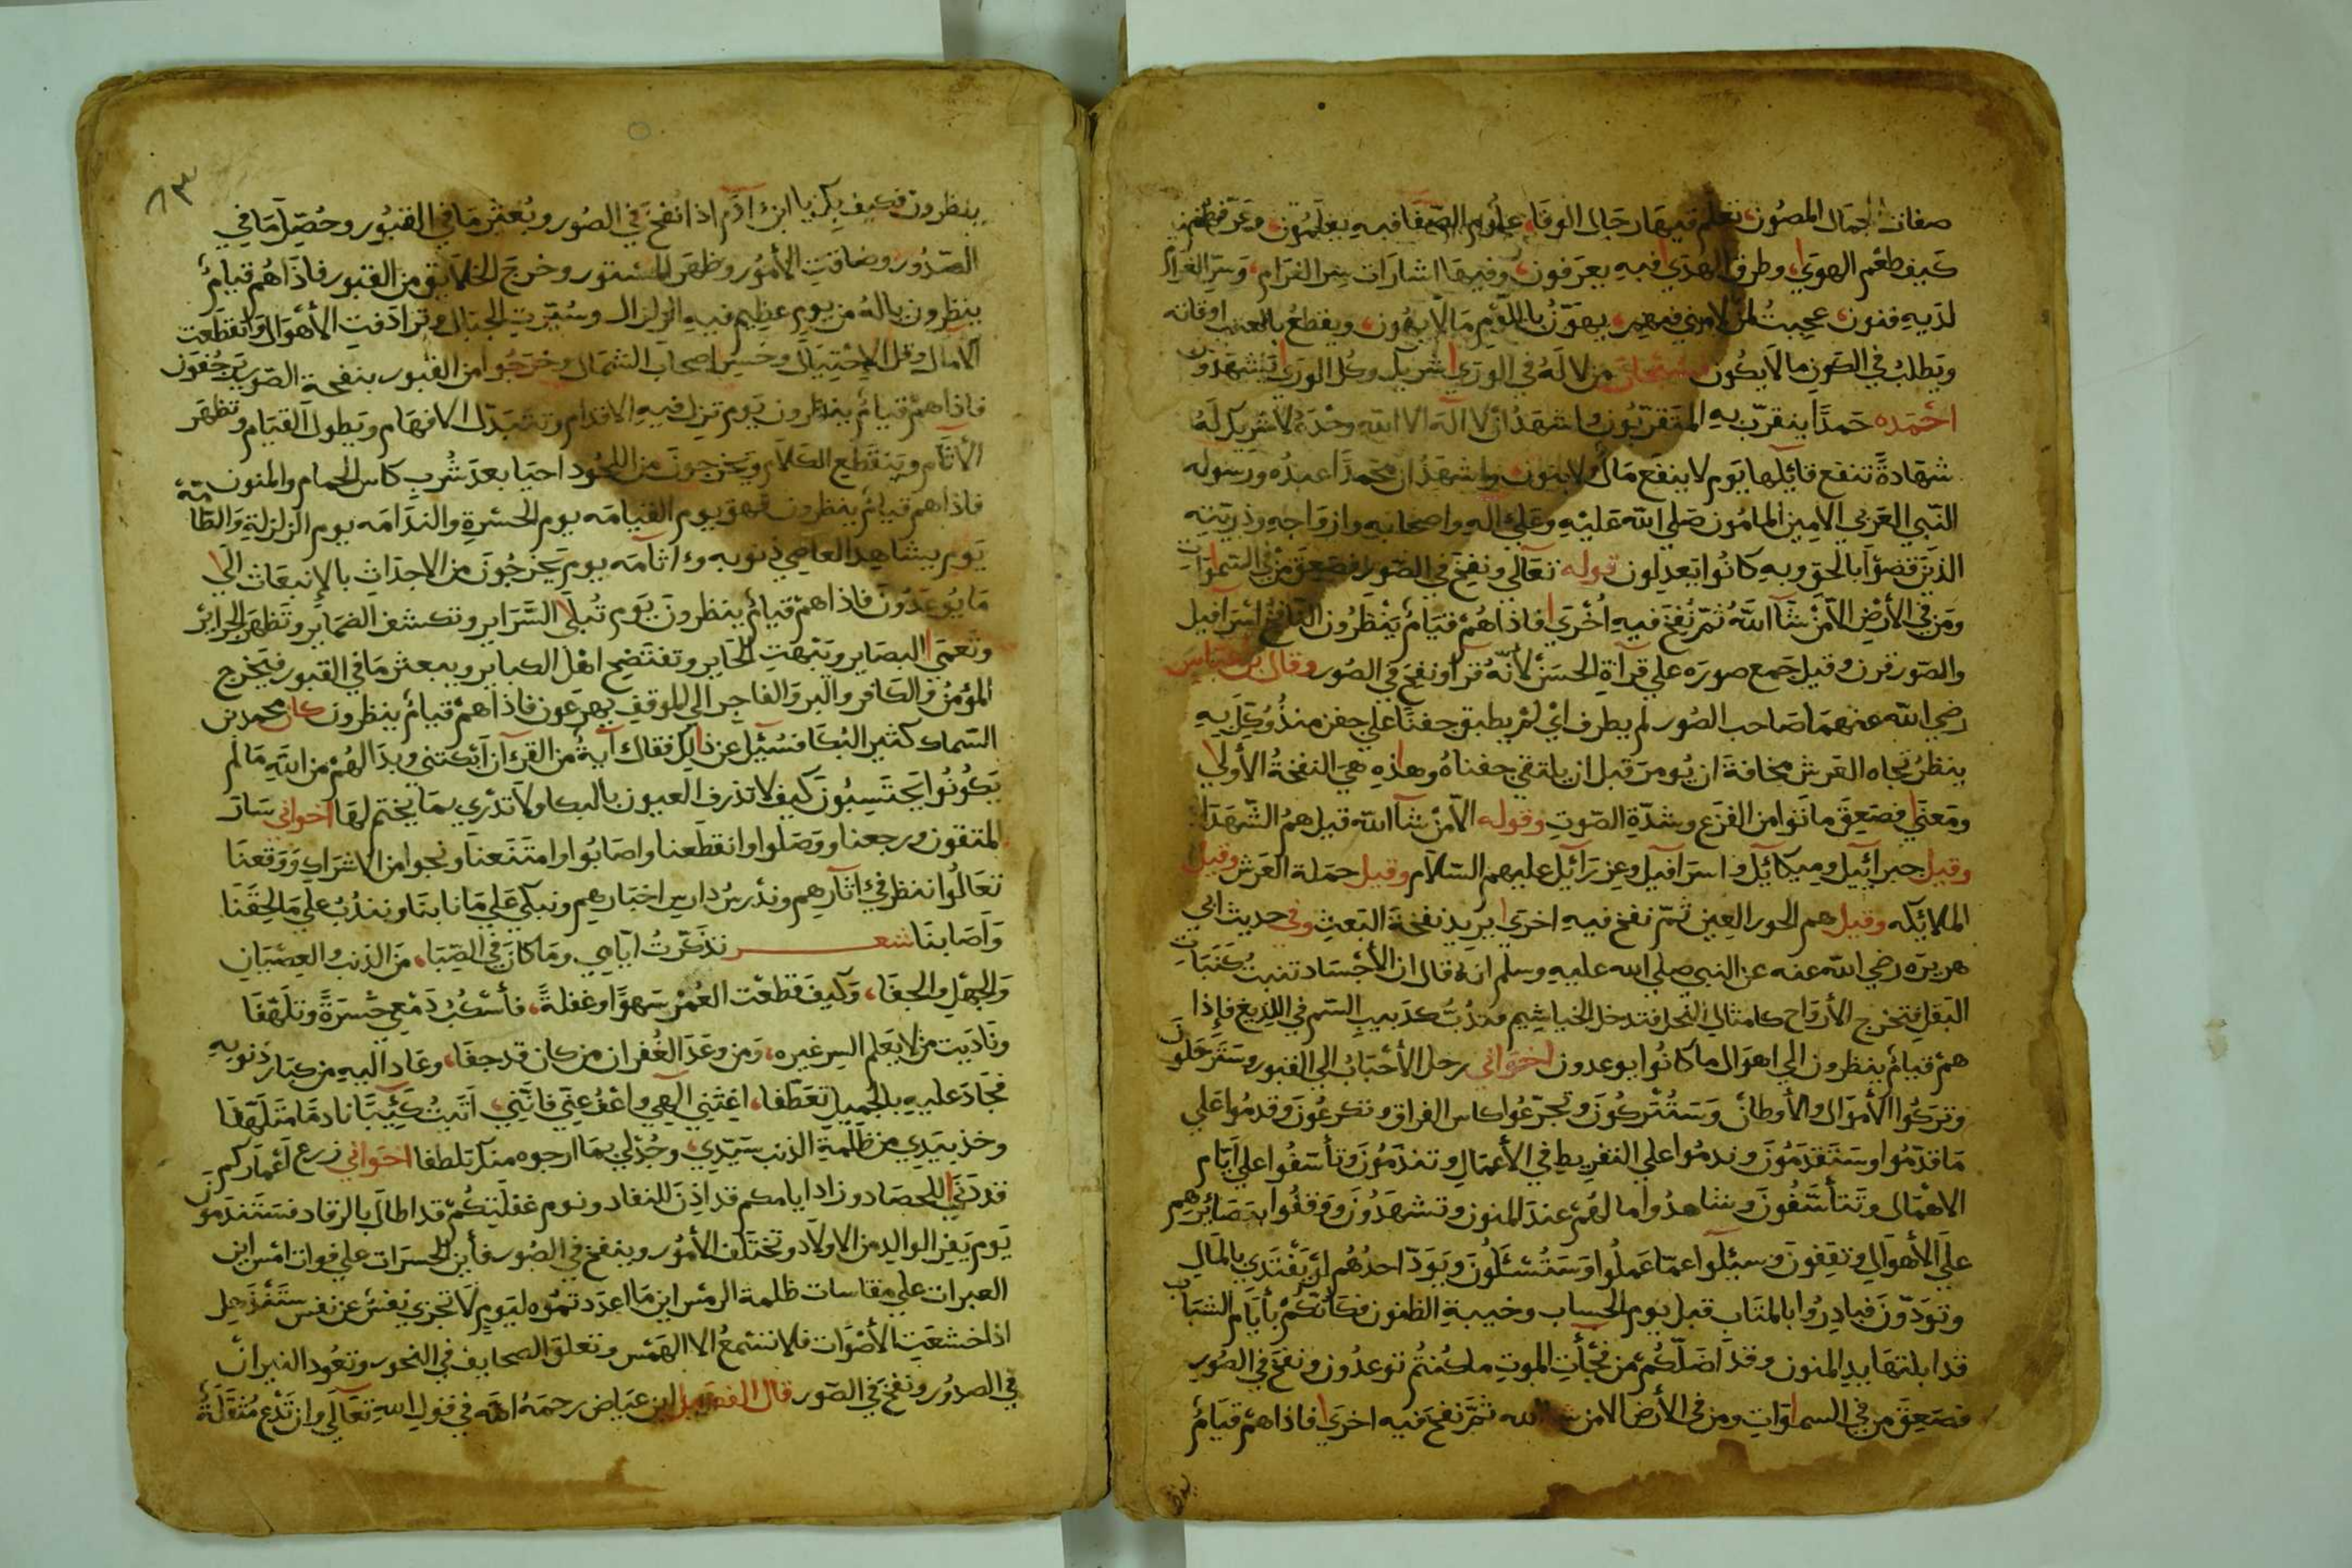 صفات جمال المصون تعلم فيها رجال الوفا علوم الصفا فيه يعلمون وعرفهم
كيف طعم الهوى وطرق الهدى فيه يعرفون وفيها اشارات سر الغرام وسر الغرام
لديه فنون عجبت لمن لامني فيهم يهوّن باللوم ما لا يهون ويقطع بالعتب اوقاته
ويطلب في الكون ما لا يكون من لا له في الورى شريك وكل الورى يشهدون
احمده حمدا يتقرب به المتقربون واشهد ان لا اله الا الله وحده لا شريك له
شهادة تنفع قائلها يوم لا ينفع مال ولا بنون واشهد ان محمدا عبده ورسوله
النبي العربي الامين المامون صلى الله عليه وعلى اله واصحابه وازواجه وذريته
الذين قضوا بالحق وبه كانوا يعدلون قوله تعالى ونفخ في الصور فصعق من في السموات
ومن في الأرض الا من شآ الله ثم نفخ فيه اخرى فاذا هم قيام ينظرون النافخ اسرافيل
والصور قرن وقيل جمع صوره على قرآة الحسن لأنه قرأ ونفخ في الصور وقال بن عباس
رضي الله عنهما صاحب الصور لم يطرف اي لم يطبق جفنا على جفن منذ وكل به
ينظر تجاه العرش مخافة ان يومر قبل ان يلتقي جفناه وهذه هي النفخة الأولى
ومعنى فصعق ماتوا من الفزع وشدة الصوت وقوله الا من شآ الله قيل هم الشهدا
وقيل جبرائيل وميكائيل واسرافيل وعزرائيل عليهم السلام وقيل حملة العرش وقيل
الملائكه وقيل هم الحور العين ثم نفخ فيه اخرى يريد نفخة البعث وفي حديث ابي
هريره رضي الله عنه عن النبي صلى الله عليه وسلم انه قال ان الأجساد تنبت كنبات
البقل فتخرج الأرواح كامثال النحل فتدخل الخياشيم فتدب كدبيب السم في اللديغ فاذا
هم قيام ينظرون الى اهوال ما كانوا يوعدون اخواني رحل الأحباب الى القبور وسترحلون
وتركوا الأموال والأوطان وستتركون وتجرعوا كاس الفراق وتكرعون وقدموا على
ما قدموا وستقدمون وندموا على التفريط في الأعمال وتندمون وتأسفوا على ايام
الاهمال وتتأسفون وشاهدوا ما لهم عند المنون وتشهدون ووقفوا ببصائرهم
على الأهوال وتقفون وسيلوا عما عملوا وستسئلون ويود احدهم لو يفتدي بالمال
وتودون فبادروا بالمتاب قبل يوم الحساب وخيبة الظنون فكأنكم بأيام الشباب
قد ابلتها يد المنون وقد اضلكم من فجأت الموت ما كنتم توعدون ونفخ في الصور
فصعق من في السماوات ومن في الأرض الا من شا الله ثم نفخ فيه اخرى فاذا هم قيام
٨٣
ينظرون فكيف بك يا ابن آدم اذا نفخ في الصور وبعثر ما في القبور وحصل ما في
الصدور وضاقت الأمور وظهر المستور وخرج الخلايق من القبور فاذا هم قيام
ينظرون ياله من يوم عظيم فيه الزلزال وسيرت الجبال وترادفت الأهوال وانقطعت
الامال وقل الاحتيال وخسر اصحاب الشمال وخرجوا من القبور بنفحة الصور يرجفون
فاذا هم قيام ينظرون يوم تزل فيه الاقدام وتتبدل الافهام ويطول القيام وتظهر
الأثام وينقطع الكلام ويخرجون من اللحود احيا بعد شرب كاس الحمام والمنون
فاذا هم قيام ينظرون فهو يوم القيامه يوم الحسرة والندامه يوم الزلزلة والطامه
يوم يشاهد العاصي ذنوبه واثامه يوم يخرجون من الاجداث بالانبعاث الى
ما يوعدون فاذا هم قيام ينظرون يوم تبلى السراير وتكشف الضماير وتظهر الجرائر
وتعمى البصاير وتبهت الحاير وتفتضح اهل الكباير ويبعثر ما في القبور فيخرج
المؤمن والكافر والبر والفاجر الى الموقف يهرعون فاذا هم قيام ينظرون كان محمد بن
السماك كثير البكا فسئل عن ذلك فقال آية من القرآن ابكتني وبدا لهم من الله ما لم
يكونوا يحتسبون كيف لا تذرف العيون بالبكا ولا تدري بما يختم لها اخواني سار
المتقون ورجعنا ووصلوا وانقطعنا واصابوا وامتنعنا ونجوا من الاشراك ووقعنا
تعالوا ننظر في اثارهم وندرس دارس اخبارهم ونبكي على ما نابنا ونندب على ما لحقنا
واصابنا شعر تذكرت ايامي وما كان في الصبا من الذنب والعصيان
والجهل والجفا وكيف قطعت العمر سهوا وغفلة فأسكب دمعي حسرة وتلهفا
وناديت من لا يعلم السر غيره ومن وعد الغفران من كان قد جفا وعاد اليه من كبار ذنوبه
فجاد عليه بالجميل تعطفا اغثني الهي واعف عني فانني اتيت كئيبا نادما متلهفا
وخذ بيدي من ظلمة الذنب سيدي وجد لي بما ارجوه منك تلطفا اخواني زرع اعماركم
قد دنى للحصاد وزاد ايامكم قد اذن للنفاد ونوم غفلتكم قد اطال بالرقاد فستندمون
يوم يفر الوالد من الاولاد وتختلف الأمور وينفخ في الصور فأين الحسرات على فوات امس اين
العبرات على مقاسات ظلمة الرمس اين ما اعددتموه ليوم لا تجزي نفس عن نفس ستنذهل
اذا خشعت الأصوات فلا تسمع الا الهمس وتعلق الصحايف في النحور وتعود النيران
في الصدور ونفخ في الصور قال الفضيل ابن عياض رحمه الله في قول الله تعالى وان تدع مثقلة